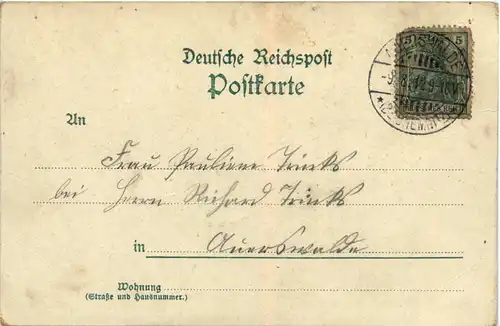 Deutsche Reichspost
Postkarte
5
An
Frau Pauliene Trinks
bei Herrn Richard Trinks
in Auerswalde
Wohnung
(Straße und Hausnummer.)